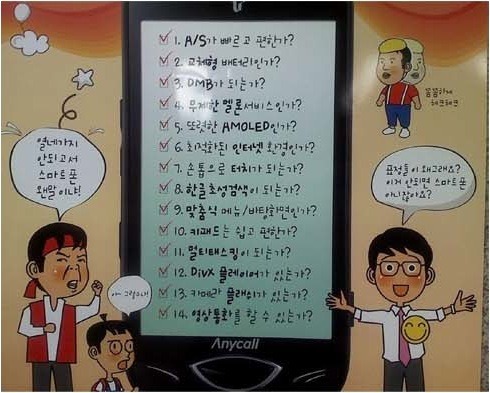 1. A/S가 빠르고 편한가?
2. 교체형 배터리인가?
3. DMB가 되는가?
4. 무제한 멜론서비스인가?
5. 또렷한 AMOLED인가?
6. 최적화된 인터넷 환경인가?
7. 손톱으로 터치가 되는가?
8. 한글 초성검색이 되는가?
9. 맞춤식 메뉴/바탕화면인가?
10. 키패드는 쉽고 편한가?
11. 멀티태스킹이 되는가?
12. DivX 플레이어가 있는가?
13. 카메라 플래쉬가 있는가?
14. 영상통화를 할 수 있는가?
Anycall
열네가지
안되고서
스마트폰
왠말이냐!
아~ 그렇구나!
꼼꼼하게
체크체크
표정들이 왜그래요?
이거 안되면 스마트폰
아니잖아요?